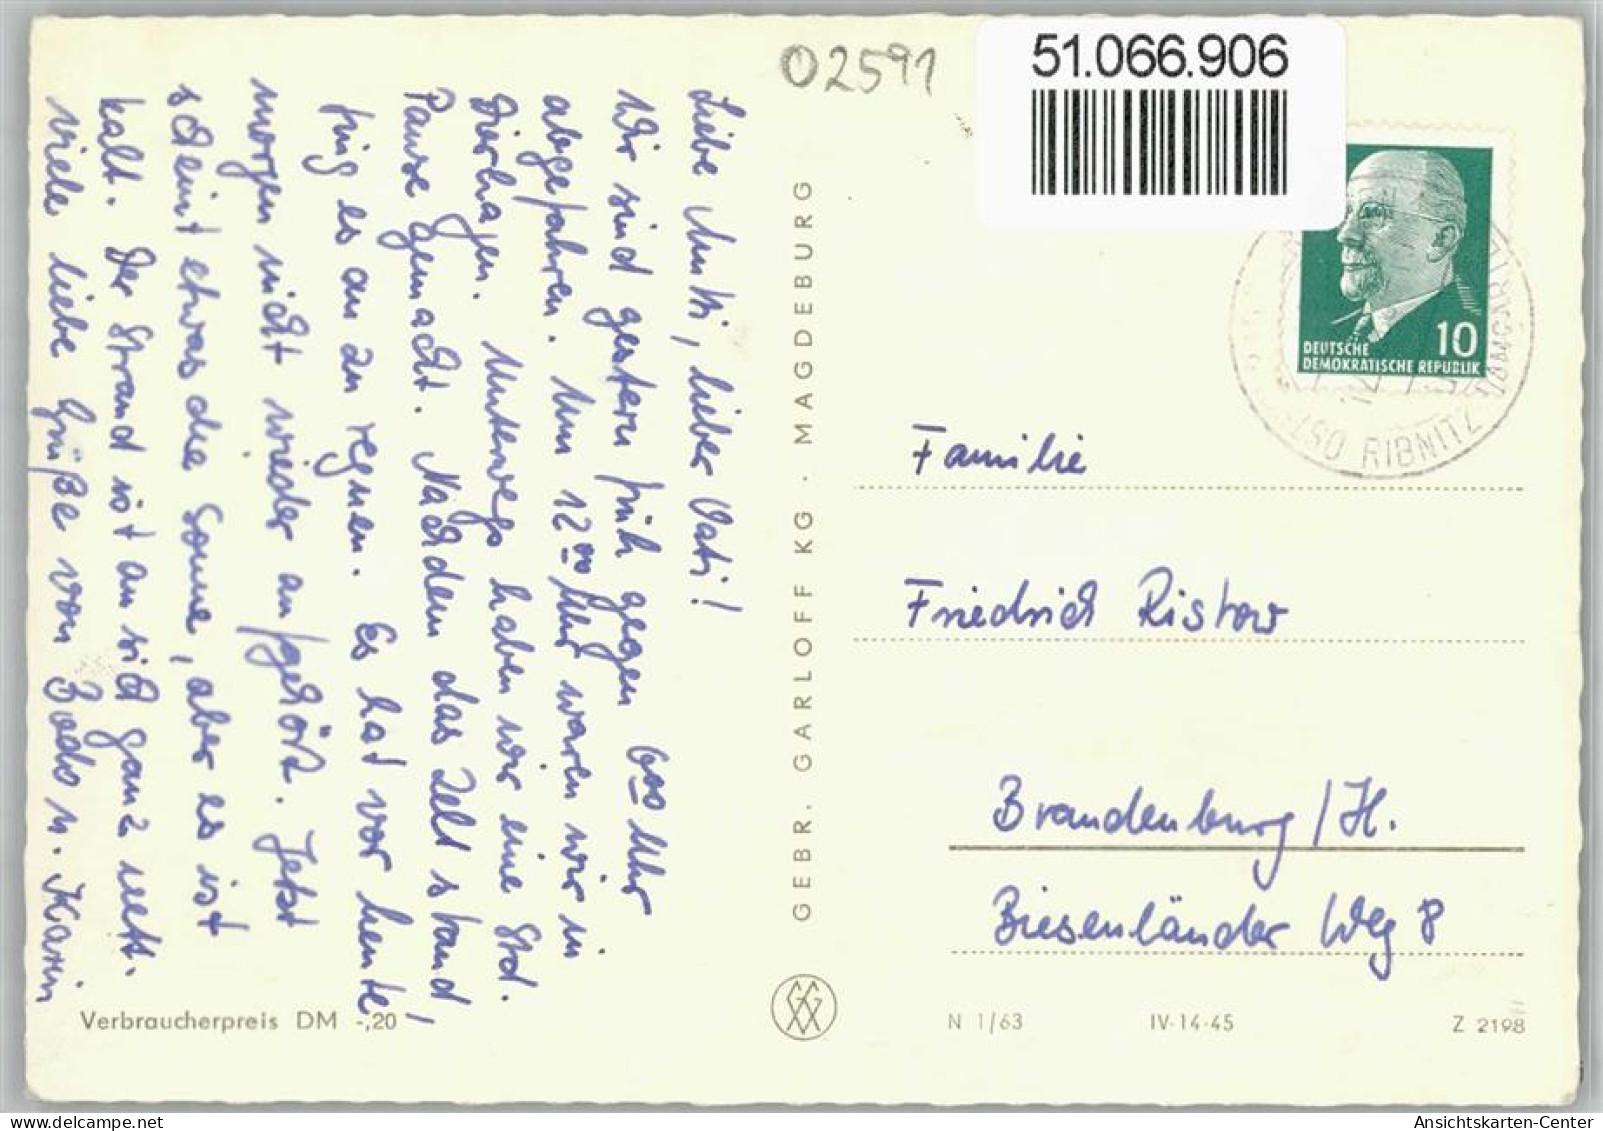 02591
51.066.906
Liebe Mutti, lieber Vati!
Wir sind gestern früh gegen 600 Uhr
abgefahren. Um 1200 Uhr waren wir in
Dierhagen. Unterwegs haben wir eine Std.
Pause gemacht. Nachdem das Zelt stand,
fing es an zu regnen. Es hat vor heute
morgen nicht wieder aufgehört. Jetzt
scheint etwas die Sonne, aber es ist
kalt. Der Strand ist an sich ganz nett.
Viele liebe Grüße von Bodo u. Karin
GEBR. GARLOFF KG · MAGDEBURG
DEUTSCHE
DEMOKRATISCHE REPUBLIK
10
RIBNITZ
Familie
Friedrich Ristow
Brandenburg / H.
Biesenländer Weg 8
Verbraucherpreis DM -,20
N 1/63
IV-14-45
Z 2198
Ansichtskarten-Center